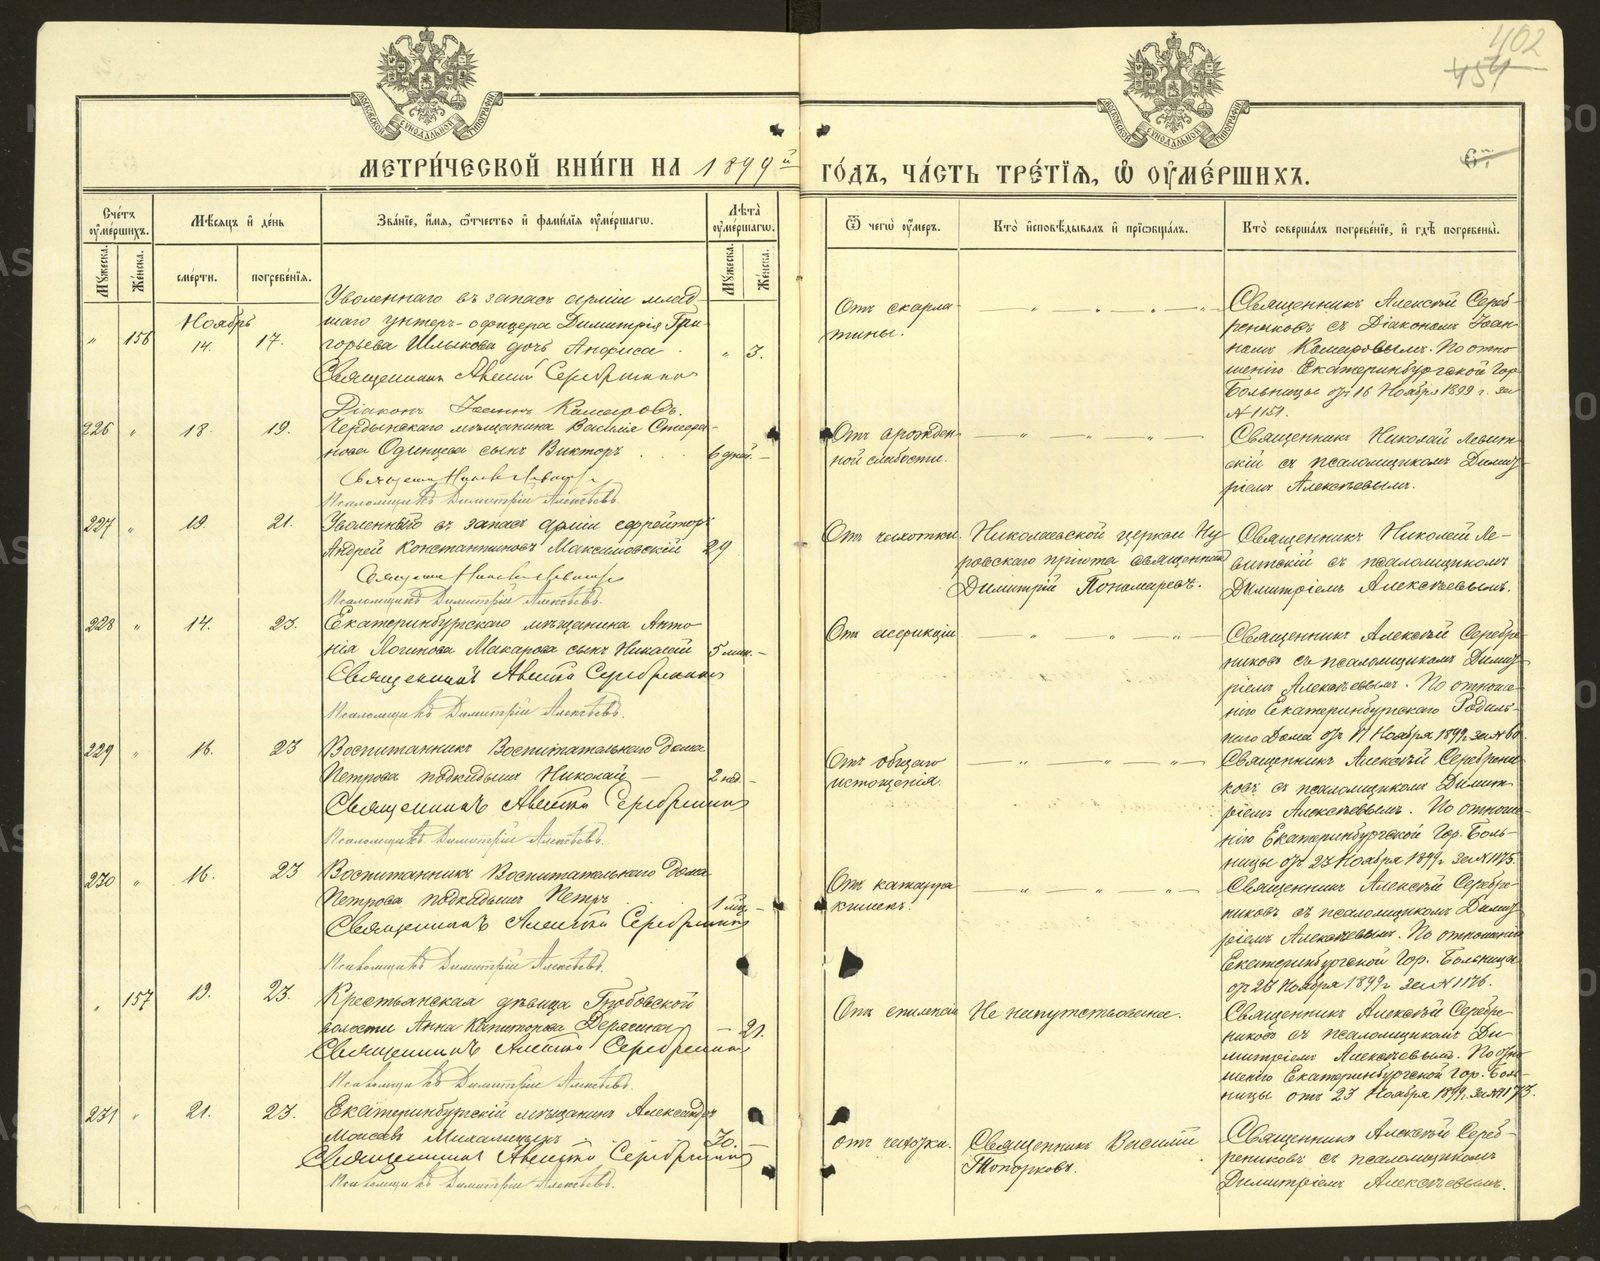 402
454
МЕТРИ́ЧЕСКОЙ КНИ́ГИ НА 1899й ГО́ДЪ, ЧА́СТЬ ТРЕ́ТІѦ, Ѡ҆ ОУ҆МЕ́РШИХЪ.
Сче́тъ оу҆ме́ршихъ.
Мѣ́сѧцъ и҆ де́нь
Зва́ніе, и҆́мѧ, ѻ҆́тчество и҆ фами́лїѧ оу҆ме́ршагѡ.
Лѣ́та оу҆ме́ршагѡ.
Ѿ чегѡ̀ оу҆́меръ.
Кто̀ и҆сповѣ́дывалъ и҆ прїѡбща́лъ.
Кто̀ соверша́лъ погребе́нїе, и҆ гдѣ̀ погребены̀.
Му́жеска.
Же́нска.
сме́рти.
погребе́нїѧ.
Му́жеска.
Же́нска.
„ 156 Ноябрь 14. 17.
Уволеннаго въ запасъ арміи млад-
шаго унтеръ-офицера Димитрія Гри-
горьева Шлыкова дочь Анфиса
„ 3.
Священникъ Алексій Серебренниковъ
Діаконъ Іоаннъ Комаровъ.
Отъ скарла-
тины.
Священникъ Алексій Сереб-
рениковъ съ Діакономъ Іоан-
номъ Комаровымъ. По отно-
шенію Екатеринбургской Гор.
Больницы отъ 16 Ноября 1899 г. за
№ 1151.
226 „ 18. 19.
Чердынскаго мѣщанина Василія Стефа-
нова Одинцева сынъ Викторъ
6 дней. —
Псаломщикъ Димитрій Алексѣевъ
Отъ врожден-
ной слабости.
Священникъ Николай Левит-
скій съ псаломщикомъ Димит-
ріемъ Алексѣевымъ.
227 „ 19. 21.
Уволенный въ запасъ арміи ефрейторъ
Андрей Константиновъ Максимовскій 29
Псаломщикъ Димитрій Алексѣевъ.
Отъ чахотки.
Николаевской церкви Ну-
ровскаго пріюта священникъ
Димитрій Пономаревъ.
Священникъ Николай Ле-
витскій съ псаломщикомъ
Димитріемъ Алексѣевымъ.
228 „ 14. 23.
Екатеринбургскаго мѣщанина Анто-
нія Логинова Макарова сынъ Николай 5 мин. —
Священникъ Алексій Серебренниковъ
Псаломщикъ Димитрій Алексѣевъ.
Отъ асфикціи
Священникъ Алексѣй Серебре-
никовъ съ псаломщикомъ Димит-
ріемъ Алексѣевымъ. По отноше-
нію Екатеринбургскаго Родиль-
наго Дома отъ 17 Ноября 1899 г. за № 60.
229 „ 16. 23
Воспитанникъ Воспитательнаго Дома
Петрова подкидышъ Николай — 2 нед. —
Священникъ Алексій Серебренниковъ
Псаломщикъ Димитрій Алексѣевъ.
Отъ общаго
истощенія.
Священникъ Алексѣй Серебрени-
ковъ съ псаломщикомъ Димит-
ріемъ Алексѣевымъ. По отноше-
нію Екатеринбургской Гор. Боль-
ницы отъ 23 Ноября 1899 г. за № 1175.
230 „ 16. 23
Воспитанникъ Воспитательнаго Дома
Петрова подкидышъ Петръ 1 мѣс. —
Священникъ Алексій Серебренниковъ
Псаломщикъ Димитрій Алексѣевъ.
Отъ катарра
кишекъ.
Священникъ Алексѣй Серебре-
никовъ съ псаломщикомъ Димит-
ріемъ Алексѣевымъ. По отношенію
Екатеринбургской Гор. Больницы
отъ 23 Ноября 1899 г. за № 1176.
„ 157 19. 23.
Крестьянская дѣвица
волости Анна — 21.
Священникъ Алексій Серебренниковъ
Псаломщикъ Димитрій Алексѣевъ.
Отъ епилепсіи
Не напутствована.
Священникъ Алексѣй Серебре-
никовъ съ псаломщикомъ Ди-
митріемъ Алексѣевымъ. По отно-
шенію Екатеринбургской Гор. Боль-
ницы отъ 23 Ноября 1899 г. за № 1173.
231 „ 21. 23.
Екатеринбургскій мѣщанинъ Александръ
70. —
Священникъ Алексій Серебренниковъ
Псаломщикъ Димитрій Алексѣевъ.
Отъ чахотки.
Священникъ Василій
Топорковъ.
Священникъ Алексѣй Сереб-
рениковъ съ псаломщикомъ
Димитріемъ Алексѣевымъ.